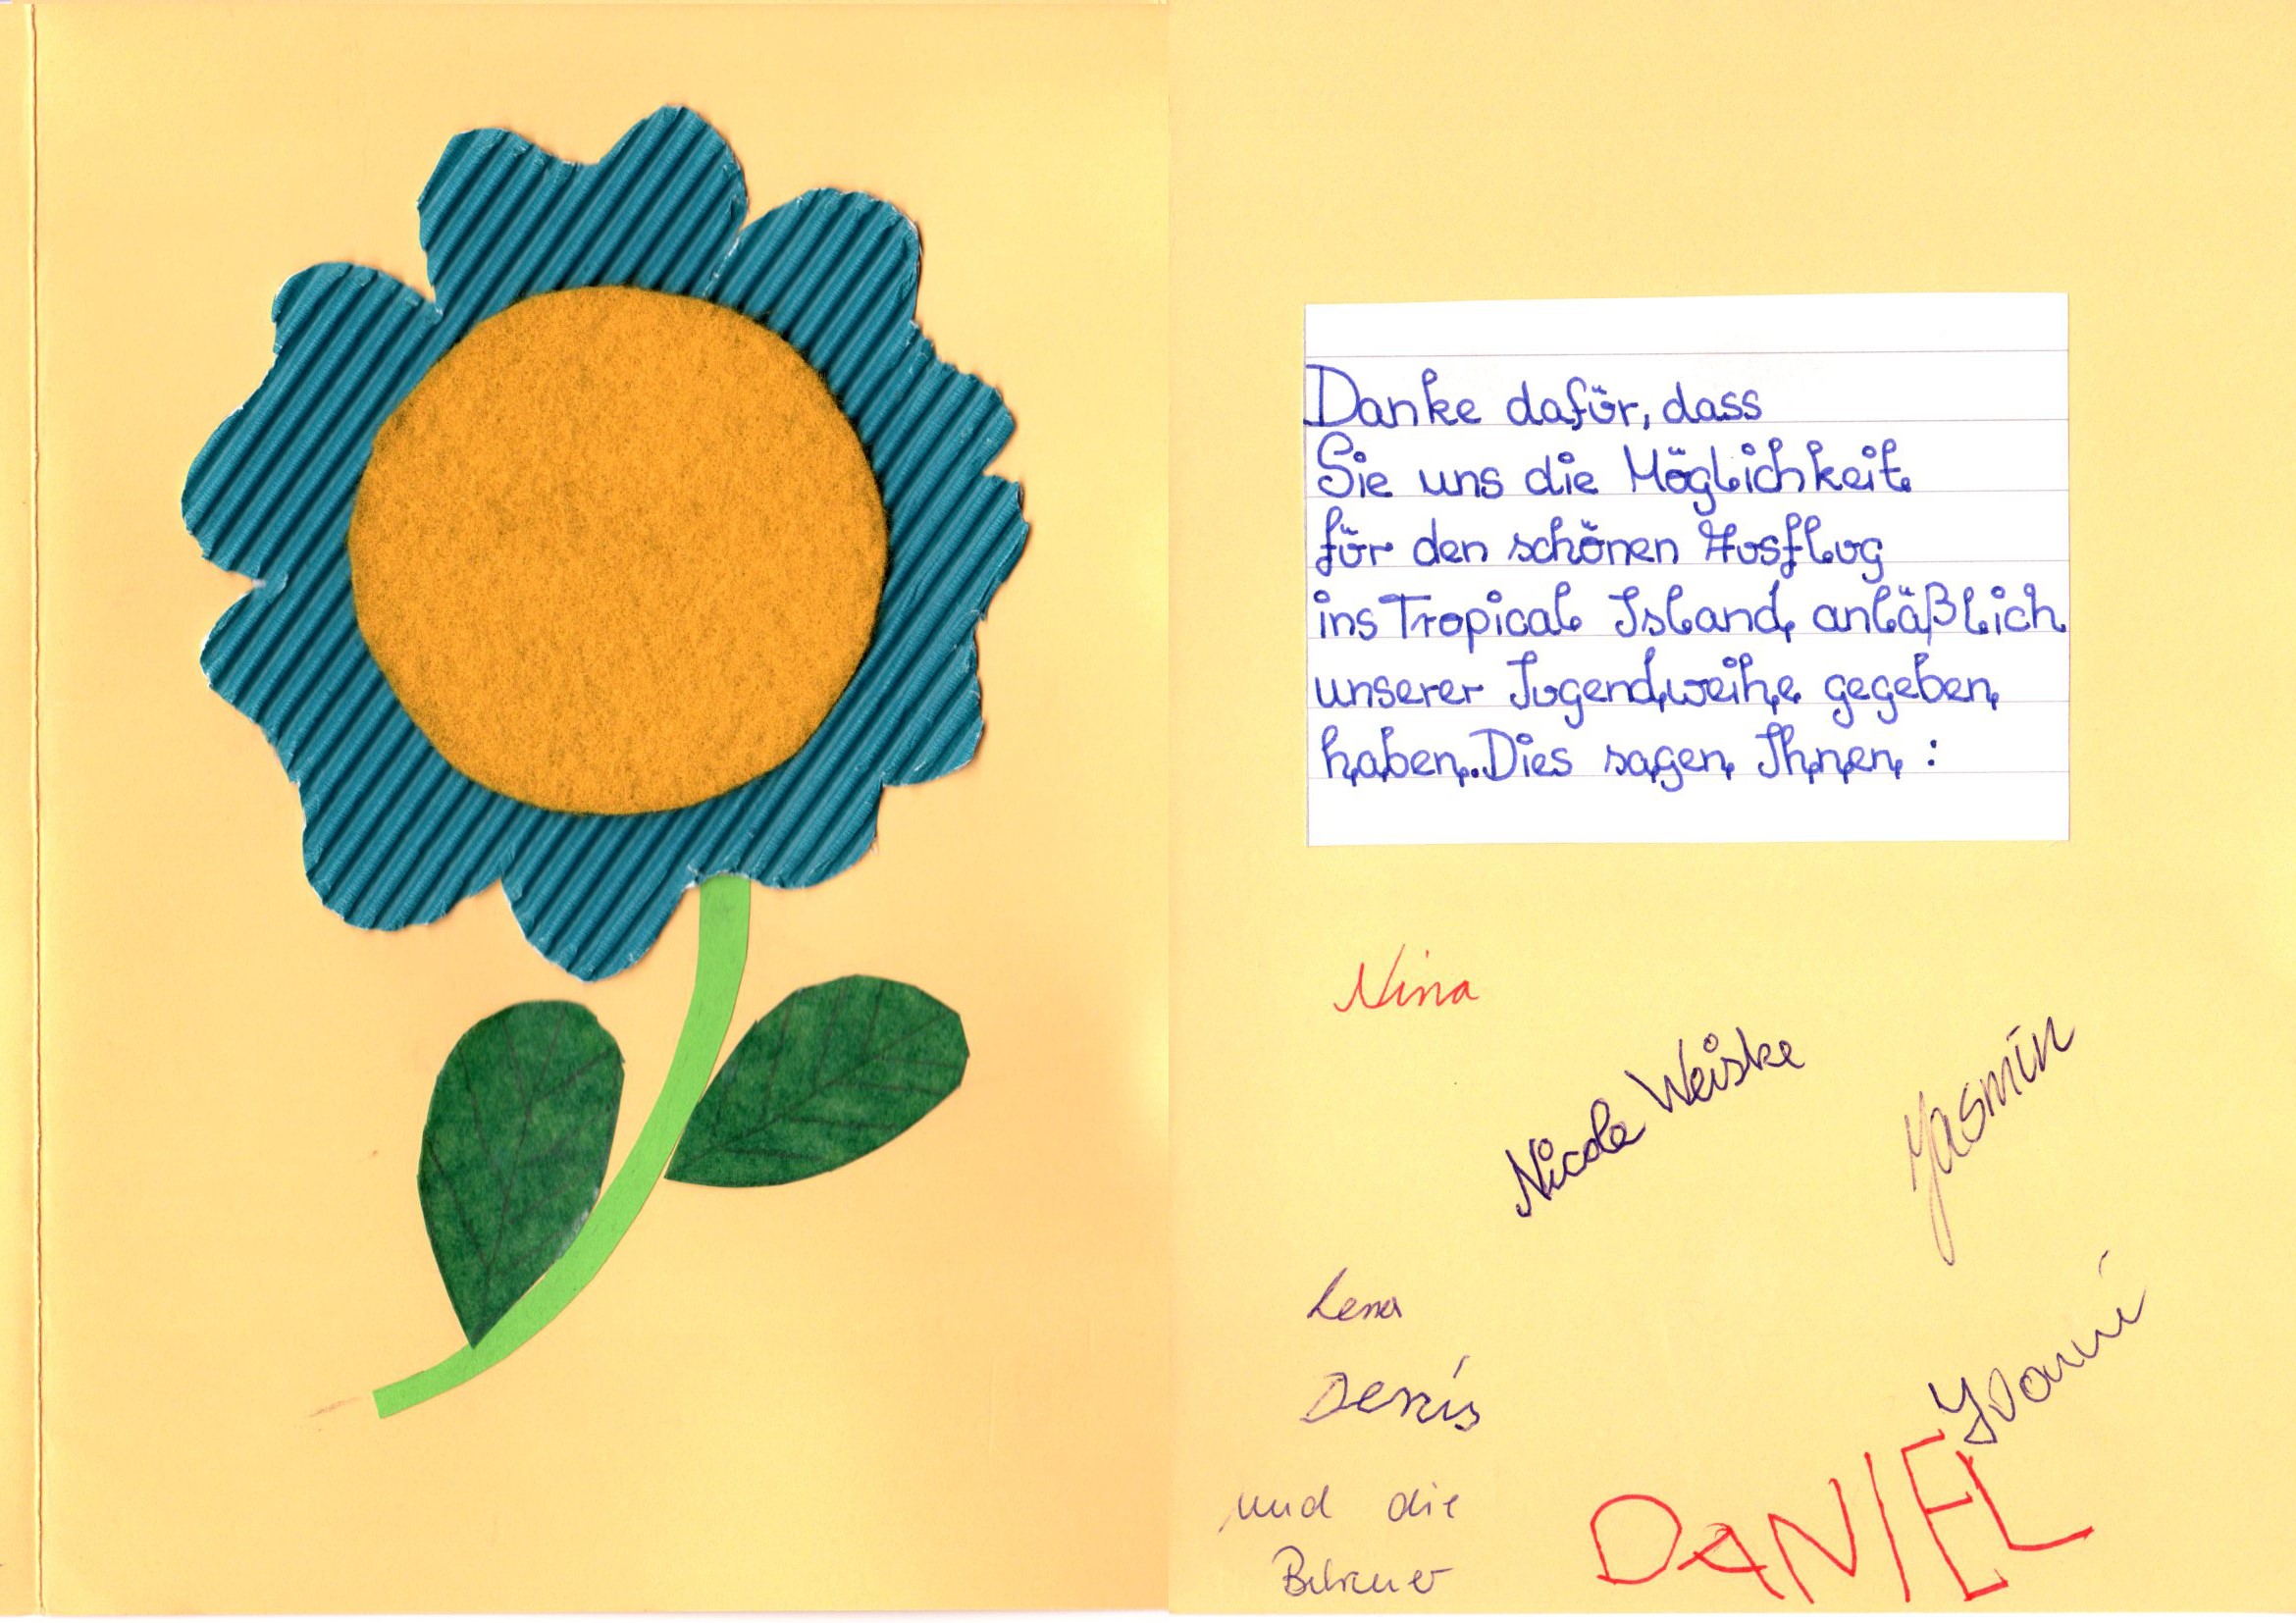 Danke dafür, dass
Sie uns die Möglichkeit
für den schönen Ausflug
ins Tropical Island anläßlich
unserer Jugendweihe gegeben
haben. Dies sagen Ihnen :
Nina
Nicole Weiske
Yasmin
Lena
Denis
Yvonni
DANIEL
und die
Betreuer